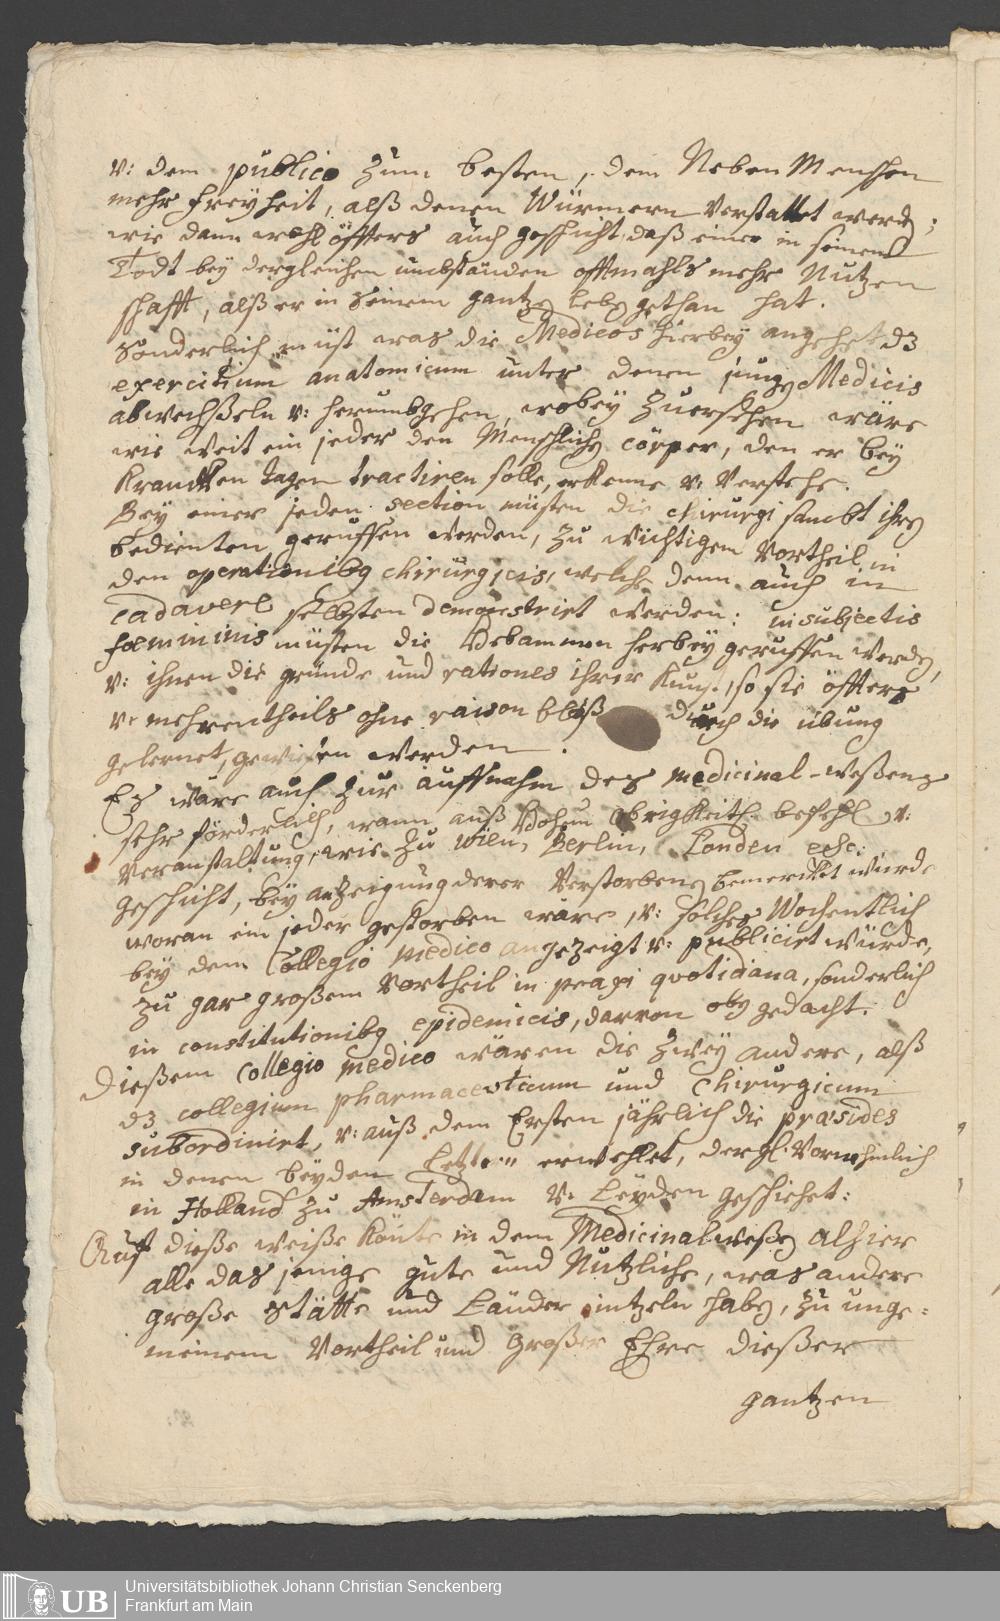 v: dem publico zum besten, dem Neben Menschen
mehr freyheit, alß denen Würmern verstattet werdē;
wie dann wohl öffters auch geschicht, daß einer in seinem
Todt bey dergleichen umbständen offtmahls mehr Nutzen
schafft, alß er in seinem gantzē lebē gethan hat.
Sonderlich müst was die Medicos hierbey angehet dz
exercitium anatomicum unter denen jungē Medicis
abwechßeln v: herumbgehen, wobey zuersehen wäre
wie weit ein jeder den Menschlichē cörper, den er bey
Krancken tagen tractiren solle, erkenne v: verstehe.
Bey einer jeden section müsten die chirurgi sambt ihrē
bedienten geruffen werden, zu wichtigem Vortheil in
den operationibg chirurgicis, welche denn auch in
cadavere selbsten demonstrirt werden: in subjectis
foemininis müsten die Hebammen herbey geruffen werdē,
v: ihnen die gründe und rationes ihrer Kunst, so sie öffters
v: mehrentheils ohne raison bloß durch die übung
gelernet, gewiesen werden.
Eß wäre auch zur auffnahm des Medicinal-weßens
sehr förderlich, wann auß Hohem Obrigkeitl. befehl v:
Veranstaltung, wie zu Wien, Berlin, Londen etc:
geschicht, bey anzeigung derer Verstorbenē bemercket würde
woran ein jeder gestorben wäre, v: solches Wochentlich
bey dem Collegio medico angezeigt v: publicirt würde,
zu gar großem Vortheil in praxi quotidiana, sonderlich
in constitutionibg epidemicis, darvon obē gedacht.
Dießem Collegio medico wären die zwey andere, alß
dz collegium pharmaceuticum und Chirurgicum
subordinirt, v: auß dem Ersten jährlich die præsides
in denen beyden Letztern erwehlet, dergl. Vornehmlich
in Holland zu Amsterdam v: Leyden geschiehet:
Auf dieße weiße könte in dem Medicinalweßē alhier
alle das jenige gute und Nützliche, was andere
große Stätte und Länder eintzeln habē, zu unge=
meinem Vortheil und großer Ehre dießer
gantzen
Universitätsbibliothek Johann Christian Senckenberg
Frankfurt am Main
UB